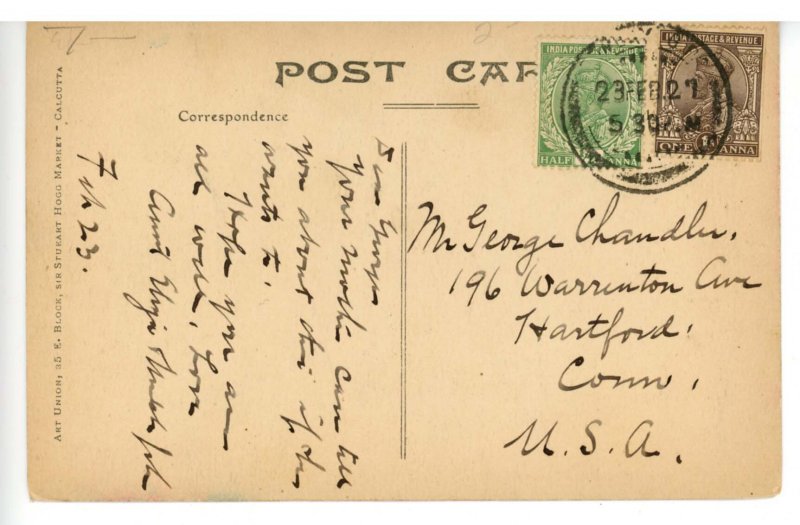 7-
2-
POST CAR
INDIA POSTAGE & REVENUE
HALF ANNA
INDIA POSTAGE & REVENUE
ONE ANNA
23 FEB 27
5 30 A.M
Correspondence
ART UNION; 35 E. BLOCK, SIR STUEART HOGG MARKET - CALCUTTA
Dear George
your mother can tell
you about this if she
wants to.
Hope you are
all well. Love
Aunt
Feb 23.
Mr George Chandler,
196 Warrenton Ave
Hartford.
Conn,
U.S.A.